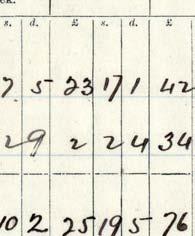 ck.
s. d. £ s. d. £
7 5 23 17 1 42
2 9 2 2 4 34
10 2 25 19 5 76